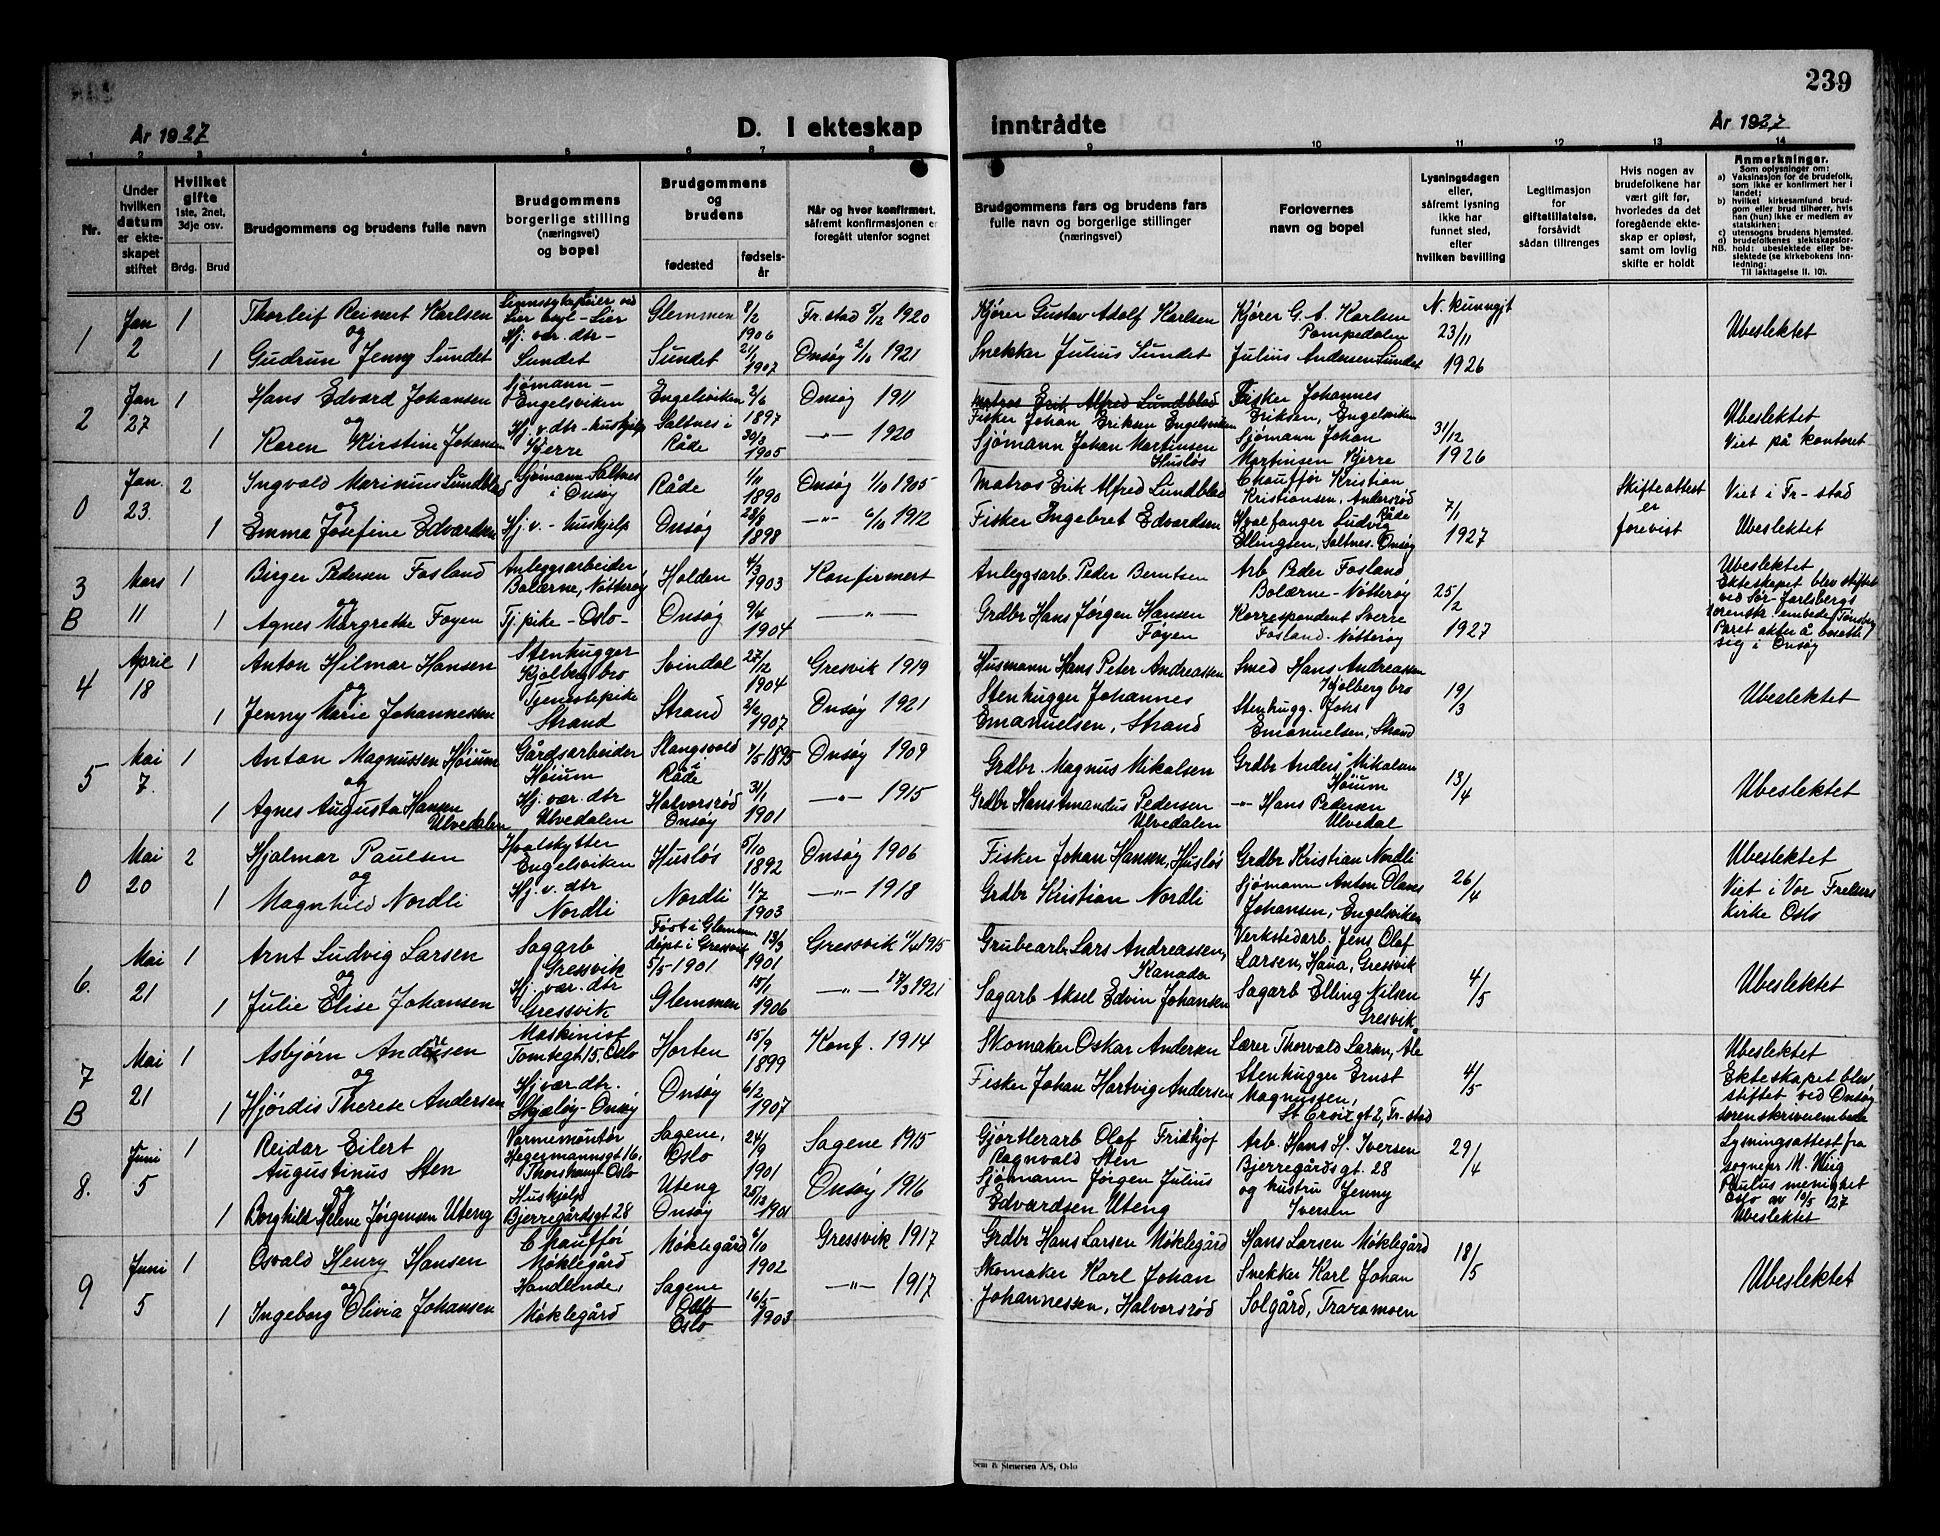 239
År 1927
D. I ekteskap inntrådte
År 1927
1 2 3 4 5 6 7 8 9 10 11 12 13 14
Nr.
Under hvilken datum er ekteskapet stiftet
Hvilket gifte 1ste, 2net, 3dje osv.
Brdg. Brud
Brudgommens og brudens fulle navn
Brudgommens borgerlige stilling (næringsvei) og bopel
Brudgommens og brudens
fødested
fødselsår
Når og hvor konfirmert, såfremt konfirmasjonen er foregått utenfor sognet
Brudgommens fars og brudens fars fulle navn og borgerlige stillinger (næringsvei)
Forlovernes navn og bopel
Lysningsdagen eller, såfremt lysning ikke har funnet sted, efter hvilken bevilling
Legitimasjon for giftetillatelse, forsåvidt sådan tiltrenges
Hvis nogen av brudefolkene har vært gift før, hvorledes da det foregående ekteskap er opløst, samt om lovlig skifte er holdt
Anmerkninger.
Som oplysninger om:
a) Vaksinasjon for de brudefolk, som ikke er konfirmert her i landet;
b) hvilket kirkesamfund brudgom eller brud tilhører, hvis han (hun) ikke er medlem av statskirken;
c) utensogns brudens hjemsted.
d) brudefolkenes slektskapsforhold: ubeslektede eller beslektede (se kirkebokens innledning:
NB.
Til iakttagelse II. 10).
1 Jan 2 1 Thorleif Reinert Karlsen
Lier Glemmen 8/2 1906 Fr.stad 5/12 1920
Kjører Gustav Adolf Karlsen Kjører G. A. Karlsen Pompedalen N. kunngjt 23/11 1926 Ubeslektet
og
1 Gudrun Jenny Sundet Hj. vær. dtr- Sundet Sundet 21/1 1907 Onsøy 2/10 1921
Snekker Julius Sundet Julius Andersen Sundet
2 Jan 27 1 Hans Edvard Johansen Sjømann - Engelsviken Engelsviken 2/6 1897 Onsøy 1911
Matros Erik Alfred Lundblad
Fisker Johan Eriksen Engelsviken Fisker Johannes Eriksen, Engelsviken 31/12 1926 Ubeslektet
Viet på kontoret
og
1 Karen Kirstine Johansen Hj. v. dtr - hushjelp Kjerre Saltnes i Råde 30/3 1905 -"- 1920
Sjømann Johan Martinsen Husløs Sjømann Johan Martinsen Kjerre
0 Jan. 23. 2 Ingvald Marinius Lundblad Sjømann Saltnes i Onsøy Råde 1/11 1890 Onsøy 1/10 1905
Matros Erik Alfred Lundblad Chauffør Kristian Kristiansen, Andersrød Råde 7/1 1927 Skifteattest er forevist Viet i Fr-stad
og
1 Emma Josefine Edvardsen Hj. v. - hushjelp Onsøy 28/8 1898 -"- 6/10 1912
Fisker Ingebret Edvardsen Hvalfanger Ludvig Ellingsen, Saltnes. Onsøy Ubeslektet
3 B Mars 11 1 Birger Pedersen Fosland Anleggsarbeider Bolærne, Nøtterøy Holden 4/3 1903 Konfirmert
Anleggsarb. Peder Berntsen Arb Peder Fosland Bolærne - Nøtterøy 25/2 1927 Ubeslektet
Ekteskapet blev stiftet ved Sør-Jarlsbergs sorenskr. embede (Tønsberg)
Paret akter å bosette sig i Onsøy
og
1 Agnes Margrethe Foyen Tj. pike - Oslo - Onsøy 9/4 1904 -"-
Grdbr Hans Jørgen Hansen Føyen Korrespondent Sverre Fosland - Nøtterøy
4 April 18 1 Anton Hilmar Hansen Stenhugger Kjølberg bro Svindal 27/12 1904 Gresvik 1919
Husmann Hans Peter Andreassen Smed Hans Andreassen Kjølberg bro 19/3 Ubeslektet
og
1 Jenny Marie Johannessen Tjenestepike Strand Strand 2/2 1907 Onsøy 1921
Stenhugger Johannes Emanuelsen, Strand Stenhugg. Johs Emanuelsen, Strand
5 Mai 7. 1 Anton Magnussen Høium Gårdsarbeider Høium Slangsvold i Råde 7/5 1895 Onsøy 1909
Grdbr Magnus Mikalsen Grdbr Anders Mikalsen Høium 13/4 Ubeslektet
og
1 Agnes Augusta Hansen Ulvedalen Hj. vær. dtr Ulvedalen Halvorsrød Onsøy 31/1 1901 -"- 1915
Grdbr Hans Amandus Pedersen Ulvedalen -"- Hans Pedersen Ulvedal
0 Mai 20 2 Hjalmar Paulsen Hvalskytter Engelsviken Husløs 5/10 1892 Onsøy 1906
Fisker Johan Hansen, Husløs Grdbr Kristian Nordli 26/4 Ubeslektet
Viet i Vor Frelsers Kirke Oslo
og
1 Magnhild Nordli Hj. v. dtr Nordli Nordli 1/7 1903 -"- 1918
Grdbr Kristian Nordli Sjømann Anton Olaves Johansen, Engelsviken
6. Mai 21 1 Arnt Ludvig Larsen Sagarb Gressvik Født i Glemmen døpt i Gressvik 5/5-1901 13/3 1901 Gressvik 11/4 1915
Grubearb Lars Andreassen, Kanada Verkstedarb. Jens Olaf Larsen, Haua, Gressvik 4/5 Ubeslektet
og
1 Julie Elise Johansen Hj. vær. dtr Gressvik Glemmen 15/1 1906 -"- 13/3 1921
Sagarb Aksel Edvin Johansen Sagarb Elling Nilsen Gresvik
7 B Mai 21 1 Asbjørn Andersen Maskinist Tomtegt 15, Oslo Horten 15/9 1899 Konf. 1914
Skomaker Oskar Andersen Lærer Thorvald Larsen, Åle 4/5 Ubeslektet
Ekteskapet blev stiftet ved Onsøy sorenskriverembede
og
1 Hjørdis Therese Andersen Hj vær dtr. Skjæløy - Onsøy Onsøy 6/2 1907
Fisker Johan Hartvig Andersen Stenhugger Ernst Magnussen, St Croix gt 2, Fr-stad
8. Juni 5 1 Reidar Eilert Augustinus Sten Varmemontør Hegermannsgt 16, Thorshaug Oslo Sagene, Oslo 24/9 1901 Sagene 1915
Gjørtlerarb Olaf Fridthjof Ragnvald Sten Arb. Hans H. Iversen Bjerregårdsgt. 28 og hustru Jenny Iversen 29/4 Lysningsattest fra sognepr M. Wiig Paulus menighet Oslo av 10/5 27
Ubeslektet
og
1 Borghild Helene Jørgensen Uteng Huskjelp Bjerregårdsgt 28 Uteng Onsøy 25/12 1901 Onsøy 1916
Sjømann Jørgen Julius Edvardsen Uteng
9 Juni 5 1 Osvald Henry Hansen Chauffør Møklegård Møklegård 6/10 1902 Gressvik 1917
Grdbr Hans Larsen Møklegård Hans Larsen Møklegård 18/5 Ubeslektet
og
1 Ingeborg Olivia Johansen Handlende, Møklegård Sagene Oslo Oslo 16/5 1903 -"- 1917
Skomaker Karl Johan Johannessen, Halvorsrød Snekker Karl Johan Solgård, Traramoen
Sem & Stenersen A/S, Oslo